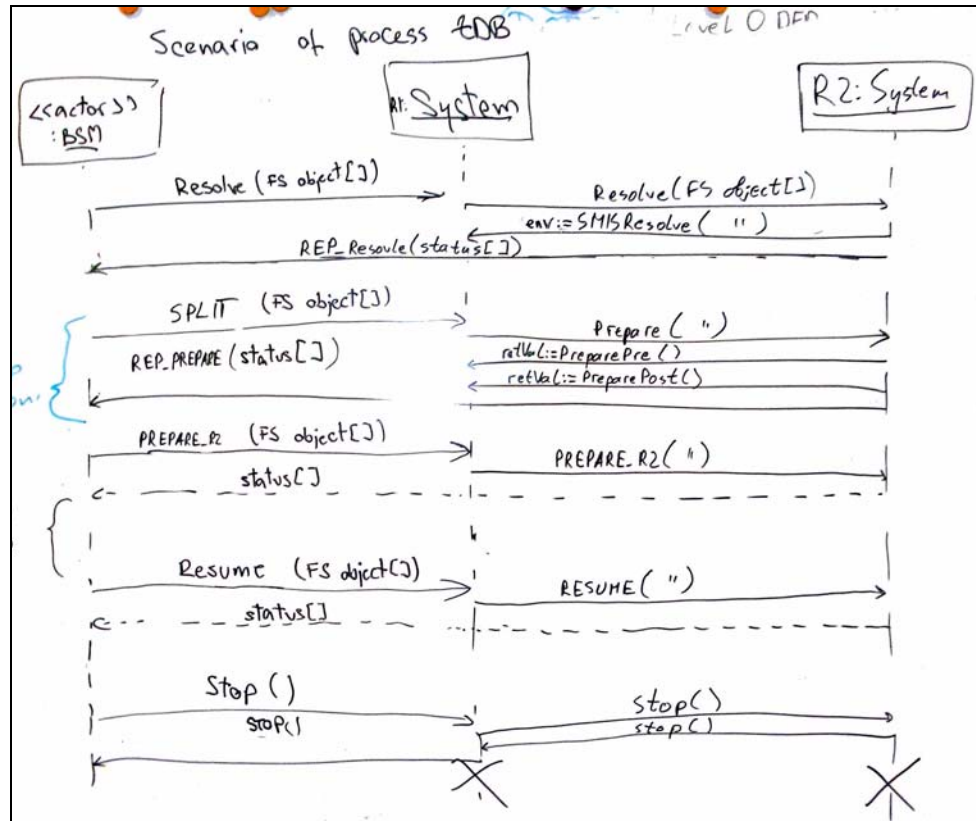 Scenaria of process tDB
Level 0 DFD
<<actor>>
: BSM
R1: System
R2: System
Resolve (FS object[])
Resolve(FS object[])
env:=SMISResolve( " )
REP_Resoule(status[])
SPLIT (FS object[])
Prepare( " )
REP_PREPARE (status[])
retVal:=PreparePre()
retVal:=PreparePost()
PREPARE_R2 (FS object[])
PREPARE_R2( " )
status[]
Resume (FS object[])
RESUME( " )
status[]
Stop ()
stop()
STOP()
stop()